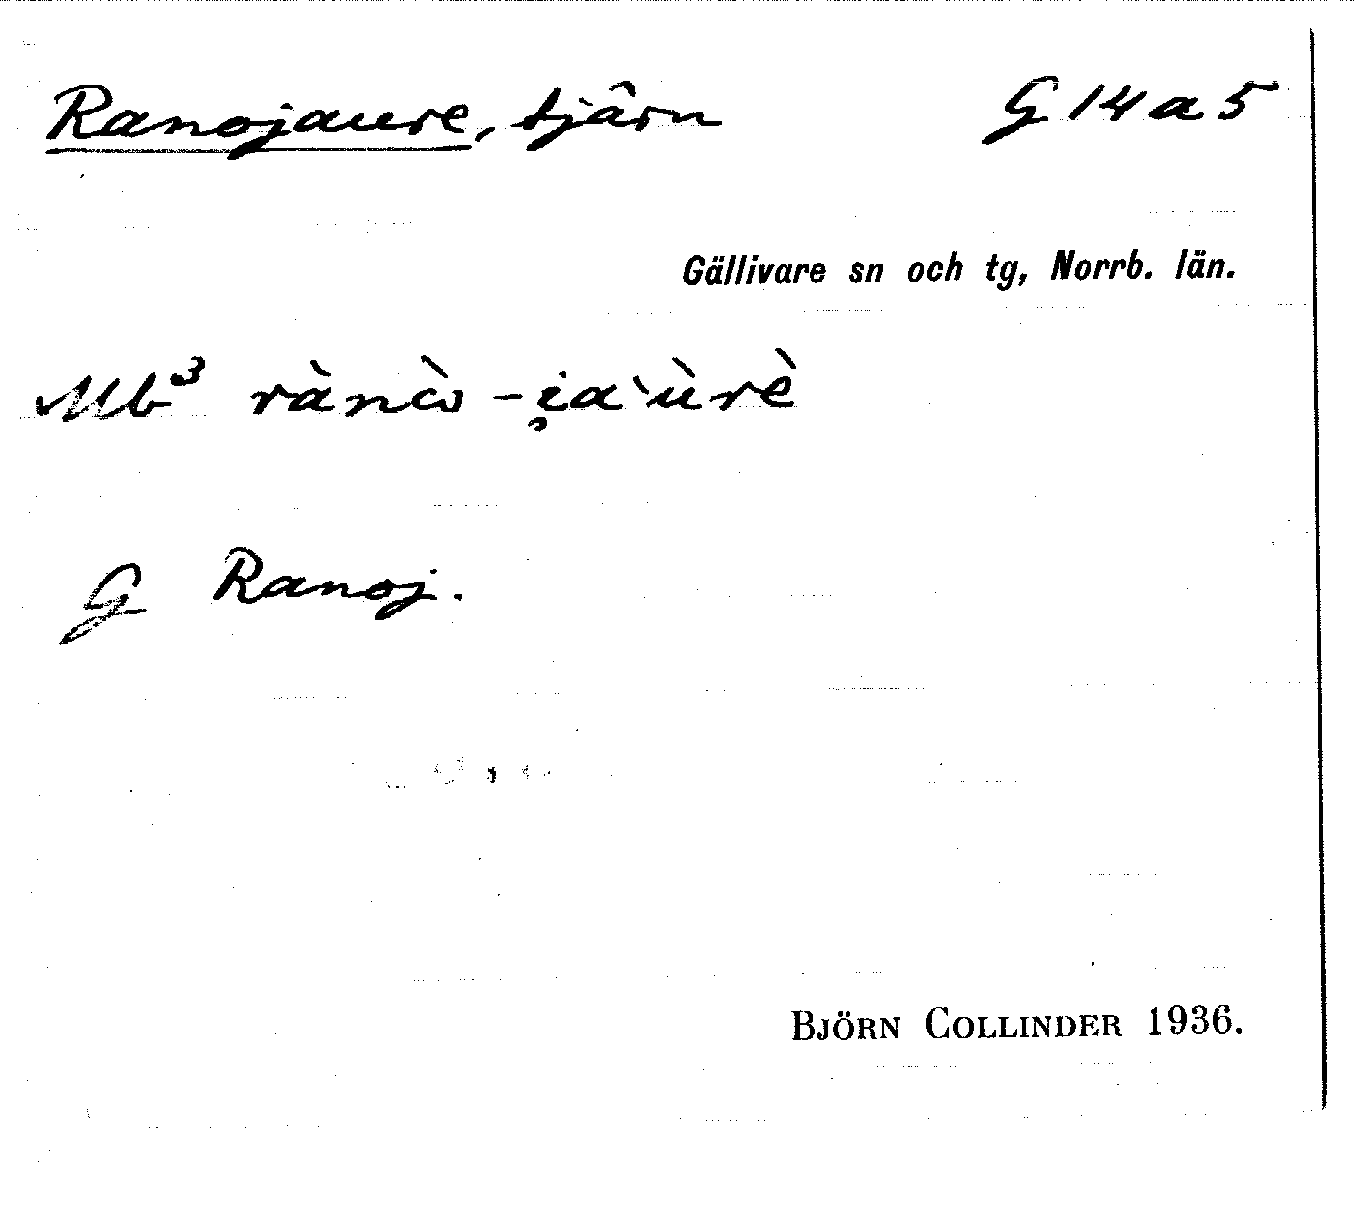 Ranojaure, tjärn G 14 a 5
Gällivare sn och tg, Norrb. län.
Mb³ rànὼ -i̯a`ùrè
G Ranoj.
BJÖRN COLLINDER 1936.